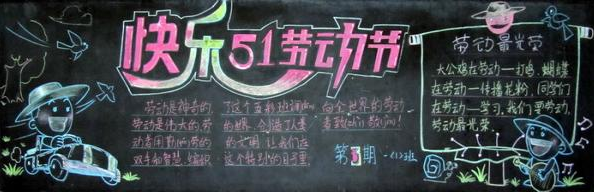 快乐51劳动节
劳动是神奇的,
劳动是伟大的,劳
动者用勤劳的
双手和智慧,编织
了这个五彩斑斓
的世界,创造了人类
的文明,让我们在
这个特别的日子里,
向全世界的劳动
者致以敬
第 期 一(1)班
劳动最光荣
大公鸡在劳动—打鸣,蝴蝶
在劳动—传播花粉,同学们
在劳动—学习,我们要劳动,
劳动最光荣。